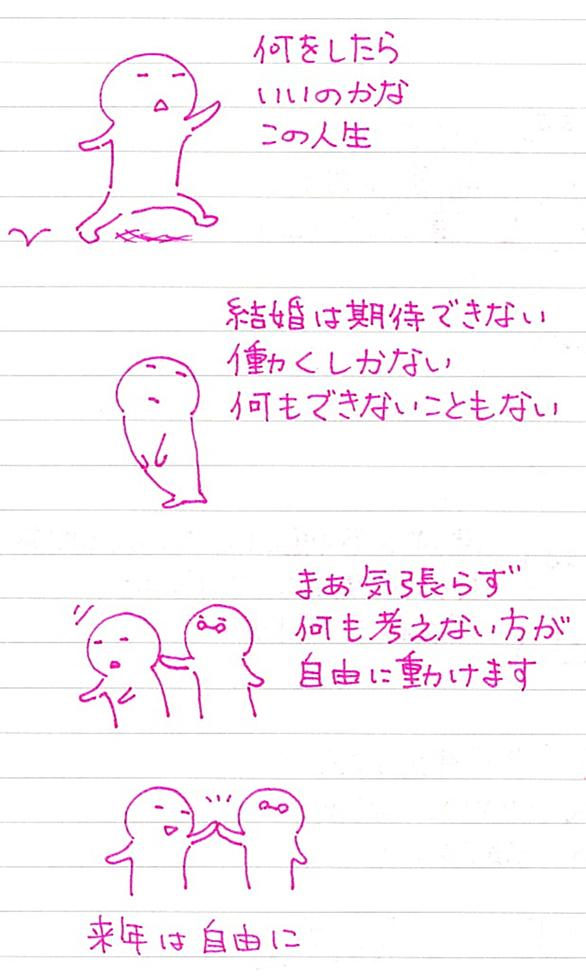 何をしたら
いいのかな
この人生
結婚は期待できない
働くしかない
何もできないこともない
まあ気張らず
何も考えない方が
自由に動けます
来年は自由に